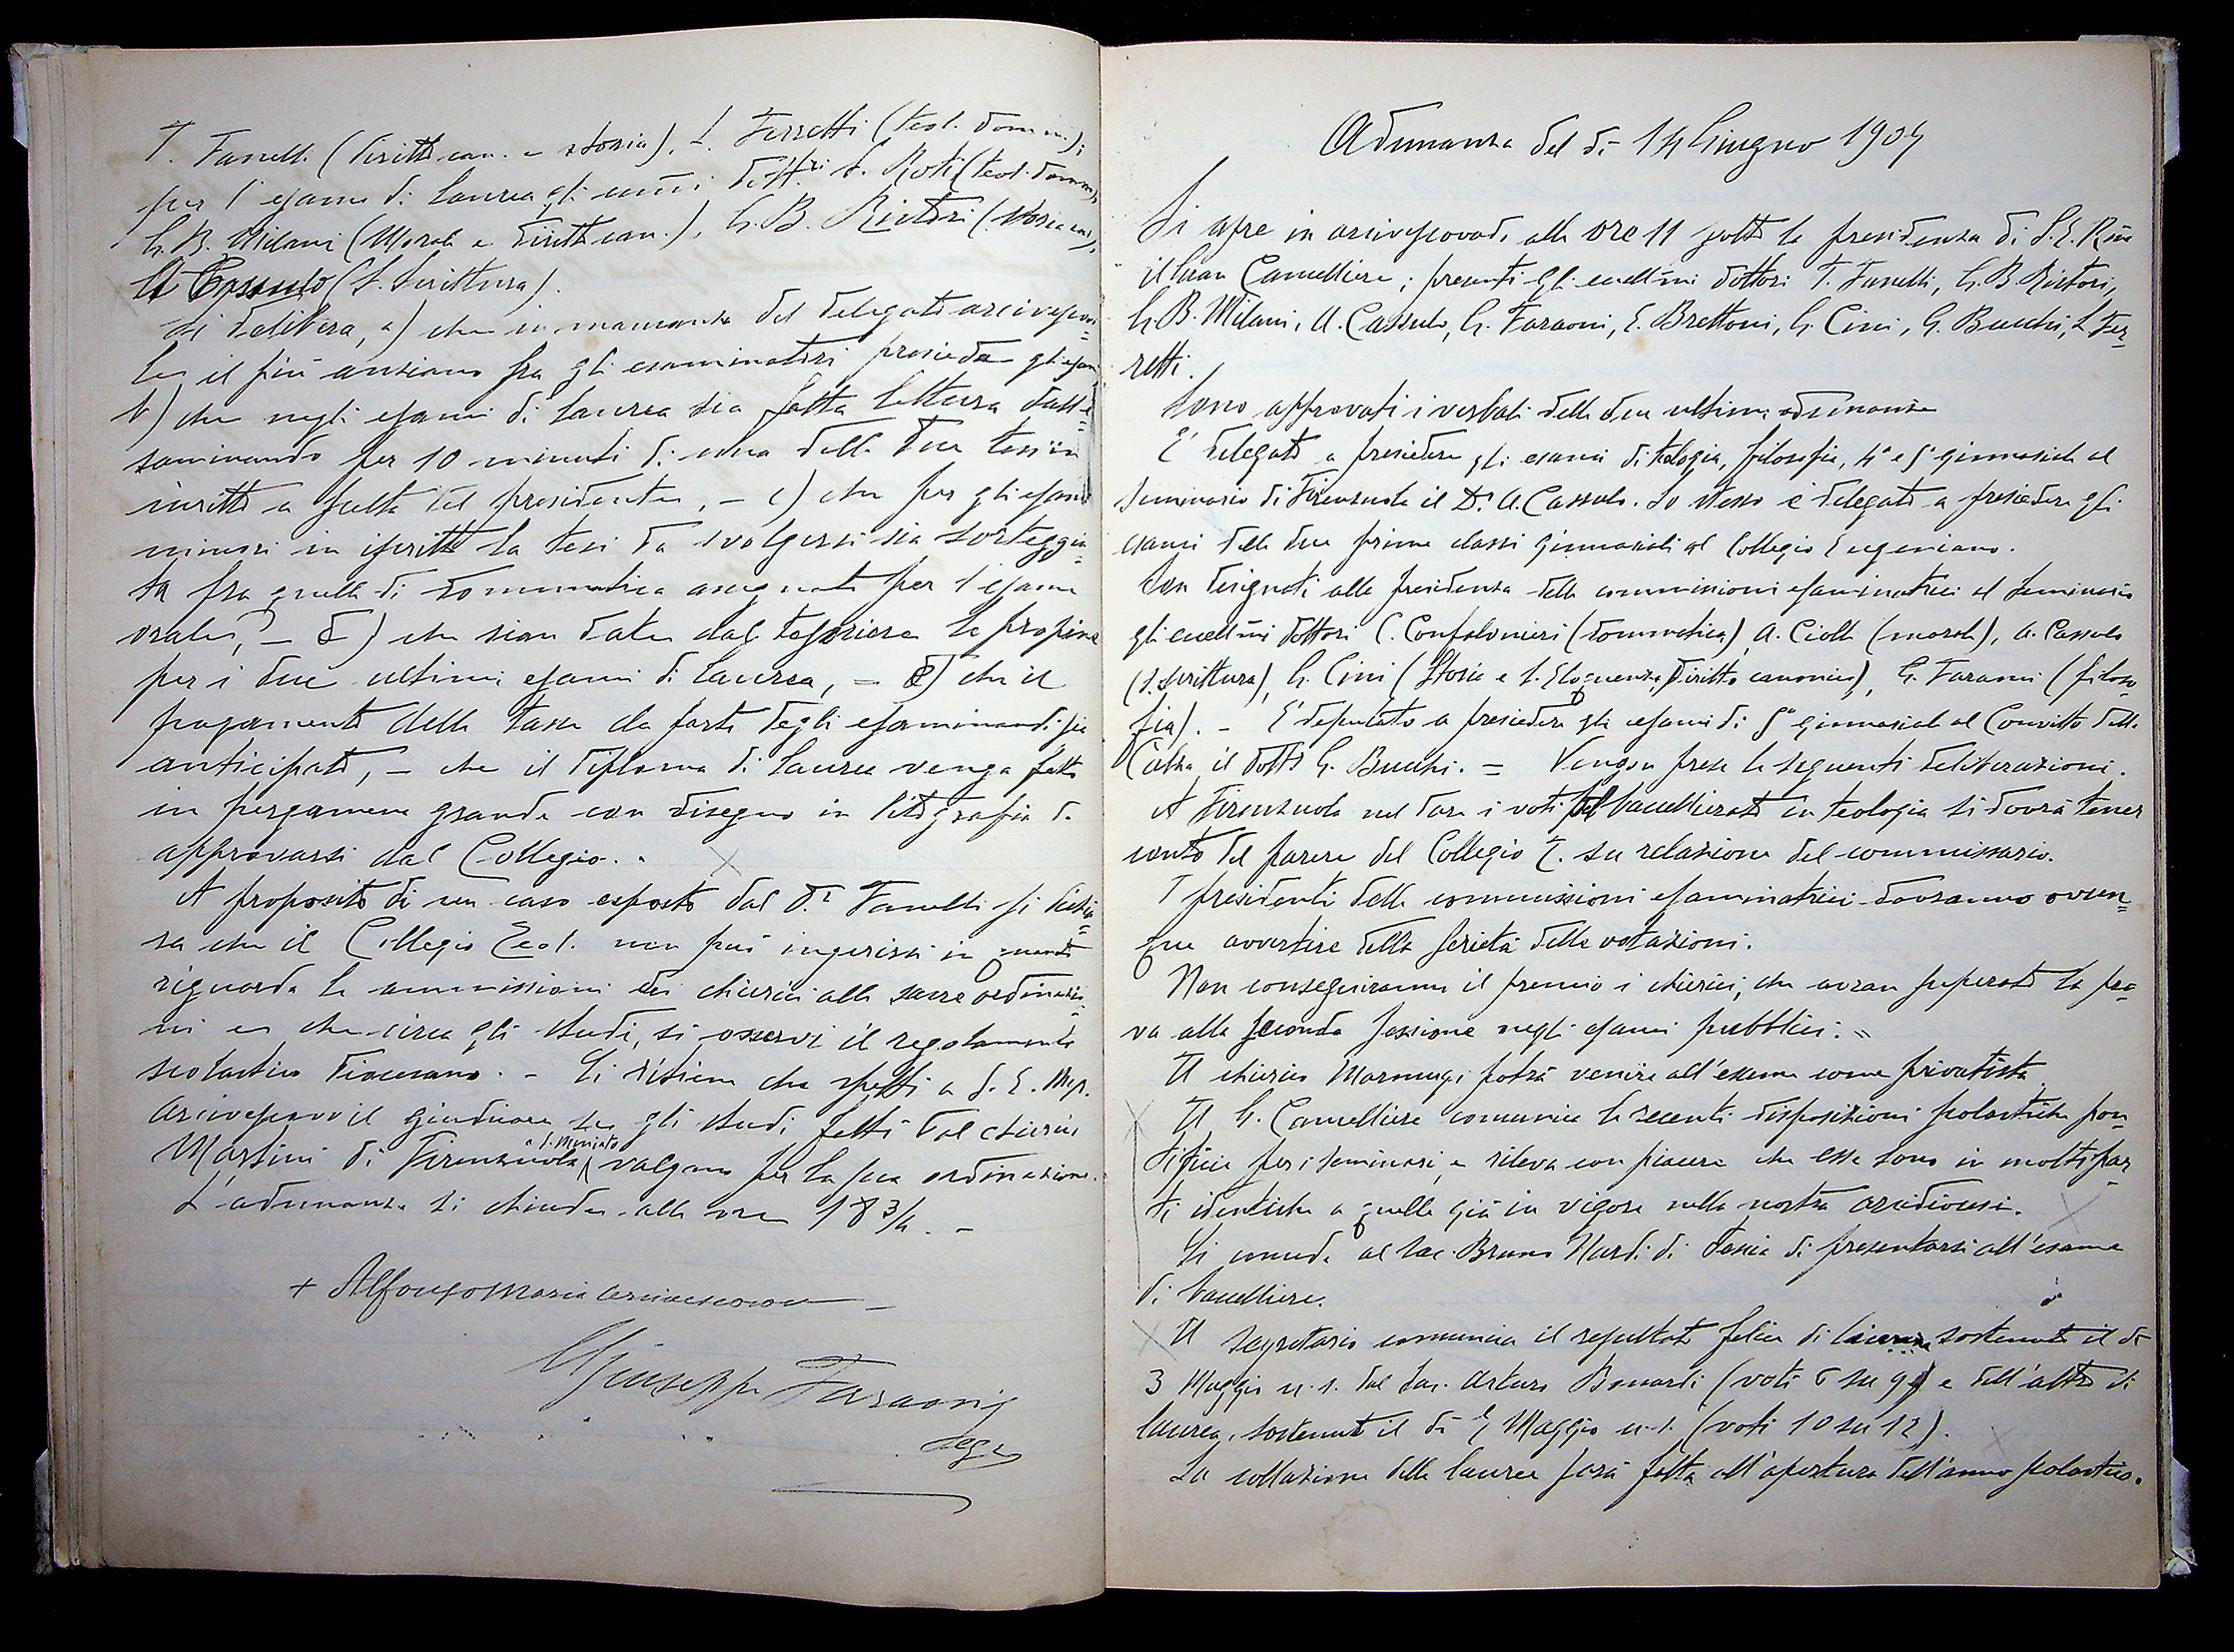 T. Fanelli (diritto can. e storia), L. Ferretti (teol. domm.);
per l'esame di laurea gli emi dott.ri L. Roti (teol. domm.),
G. B. Milani (Morale e diritto can.), G. B. Ristori (Storia eccl.),
A Cassulo (S. Scrittura).
Si delibera, a) che in mancanza del delegato arcivescovi=
le il più anziano fra gli esaminatori presieda gli esami
b) che negli esami di laurea sia fatta lettura dall'e=
saminando per 10 minuti di una delle due tesi in
iscritto a scelta del presidente, – c) che per gli esami
minori in iscritto la tesi da svolgersi sia sorteggia=
ta fra quelle di dommatica assegnate per l'esame
orale, – d) che sian date dal tesoriere le propine
per i due ultimi esami di laurea, = e) che il
pagamento delle tasse da parte degli esaminandi sia
anticipato, – che il diploma di laurea venga fatto
in pergamena grande con disegno in litografia da
approvarsi dal Collegio. –
A proposito di un caso esposto dal d.r Fanelli si dichia=
ra che il Collegio Teol. non può ingerirsi in quanto
riguarda le ammissioni dei chierici alle sacre ordinazio=
ni e che circa gli studi, si osservi il regolamento
scolastico diocesano. – Si ritiene che spetti a S. E. Mgr.
Arcivescovo il giudicare se gli studi fatti dal chierico
Martini di Firenzuola a S. Miniato valgano per la sua ordinazione.
L'adunanza si chiude alle ore 18 3/4. –
+ Alfonso Maria Arcivescovo
Giuseppe Faraoni
Segr
Adunanza del dì 14 Giugno 1907
Si apre in arcivescovado alle ore 11 sotto la presidenza di S. E. Rma
il Gran Cancelliere; presenti gli eccellmi dottori T. Fanelli, G. B. Ristori,
G. B. Milani, A. Cassulo, G. Faraoni, E. Brettoni, G. Cini, G. Bucchi, L. Fer=
retti.
Sono approvati i verbali delle due ultime adunanze
E' delegato a presiedere gli esami di teologia, filosofia, 4a e 5a ginnasiale al
Seminario di Firenzuola il Dr. A. Cassulo. Lo stesso è delegato a presiedere gli
esami delle due prime classi ginnasiali al Collegio Eugeniano.
Son designati alla presidenza delle commissioni esaminatrici al Seminario
gli eccellmi dottori C. Confalonieri (dommatica), A. Ciolli (morale), A. Cassulo
(S. Scrittura), G. Cini (Storia e S. Eloquenza, Diritto canonico), G. Faraoni (filoso=
fia). – E' deputato a presiedere gli esami di 5a ginnasiale al Convitto della
Calza il dott. G. Bucchi. = Vengon prese le seguenti deliberazioni.
A Firenzuola nel dare i voti pel baccellierato in teologia si dovrà tener
conto del parere del Collegio T. su relazione del commissario.
I presidenti delle commissioni esaminatrici dovranno ovun=
que avvertire della serietà delle votazioni.
Non conseguiranno il premio i chierici, che avran superato la pro=
va alla seconda sessione negli esami pubblici. =
Il chierico Marmugi potrà venire all'esame come privatista
Il G. Cancelliere comunica le recenti disposizioni scolastiche pon=
tificie per i seminari, e rileva con piacere che esse sono in molte par=
ti identiche a quelle già in vigore nella nostra arcidiocesi.
Si concede al sac. Bruno Nardi di Pescia di presentarsi all'esame
di baccelliere.
Il segretario comunica il resultato felice di laurea sostenuto il dì
3 Maggio u. s. dal sac. Arturo Bonardi (voti 6 su 9) e dell'altro di
laurea, sostenuto il dì Maggio u. s. (voti 10 su 12).
La collazione della laurea sarà fatta all'apertura dell'anno scolastico.